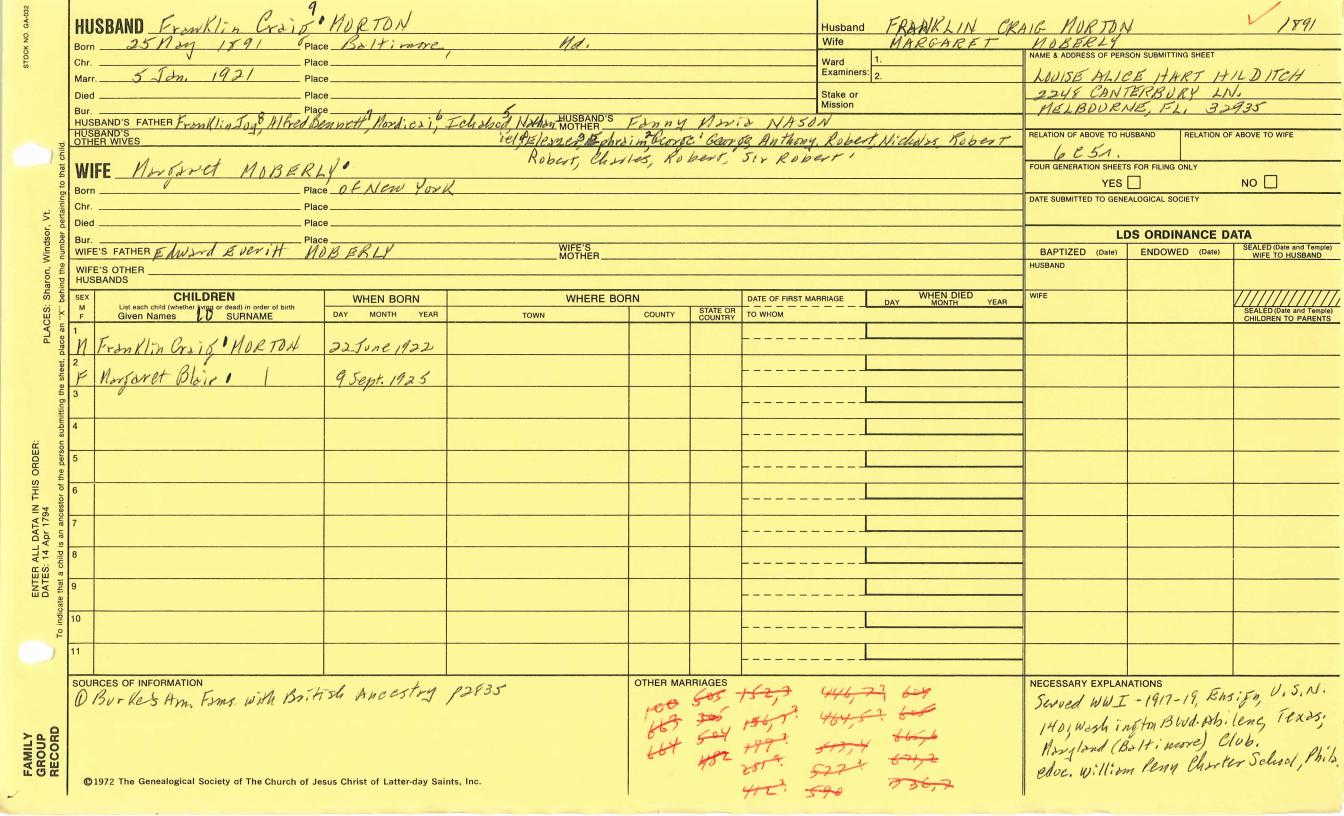 STOCK NO. GA-032
HUSBAND Franklin Craig 9 MORTON
Born 25 May 1891 Place Baltimore, Md.
Chr. Place
Marr. 5 Jan. 1921 Place
Died Place
Bur. Place
HUSBAND'S FATHER Franklin Joy, 8 Alfred Bennett, 7 Mordicai, 6 Ichabod, 5 Nathan, HUSBAND'S MOTHER Fanny Maria NASON
HUSBAND'S OTHER WIVES Eleazer, 3 Ephraim 2 George 1 George Anthony, Robert, Nicholas Robert
Robert, Charles, Robert, Sir Robert
Husband FRANKLIN CRAIG MORTON 1891
Wife MARGARET MOBERLY
Ward Examiners: 1.
2.
Stake or Mission
NAME & ADDRESS OF PERSON SUBMITTING SHEET
LOUISE ALICE HART HILDITCH
2248 CANTERBURY LN.
MELBOURNE, FL. 32935
RELATION OF ABOVE TO HUSBAND RELATION OF ABOVE TO WIFE
6C5r.
FOUR GENERATION SHEETS FOR FILING ONLY
YES NO
DATE SUBMITTED TO GENEALOGICAL SOCIETY
WIFE Margaret MOBERLY
Born Place of New York
Chr. Place
Died Place
Bur. Place
WIFE'S FATHER Edward Everitt MOBERLY WIFE'S MOTHER
WIFE'S OTHER HUSBANDS
LDS ORDINANCE DATA
BAPTIZED (Date) ENDOWED (Date) SEALED (Date and Temple) WIFE TO HUSBAND
HUSBAND
WIFE
SEALED (Date and Temple) CHILDREN TO PARENTS
SEX M F
CHILDREN
List each child (whether living or dead) in order of birth
Given Names 10 SURNAME
WHEN BORN
DAY MONTH YEAR
WHERE BORN
TOWN COUNTY STATE OR COUNTRY
DATE OF FIRST MARRIAGE
TO WHOM
WHEN DIED
DAY MONTH YEAR
1 M Franklin Craig MORTON 22 June 1922
2 F Margaret Blair 9 Sept. 1925
3
4
5
6
7
8
9
10
11
SOURCES OF INFORMATION
① Burke's Am. Fams with British Ancestry p2835
©1972 The Genealogical Society of The Church of Jesus Christ of Latter-day Saints, Inc.
OTHER MARRIAGES
100 505 152,7 446,77 604
663 305 156,7
664 504 464,57
482 513,4 665,6
577 671,2
412 590 736,7
NECESSARY EXPLANATIONS
Served WWI - 1917-19, Ensign, U.S.N.
1401 Washington Blvd. Abilene, Texas;
Maryland (Baltimore) Club.
educ. William Penn Charter School, Phila.
PLACES: Sharon, Windsor, Vt.
ENTER ALL DATA IN THIS ORDER:
DATES: 14 Apr 1794
To indicate that a child is an ancestor of the person submitting the sheet, place an "X" behind the number pertaining to that child.
FAMILY
GROUP
RECORD